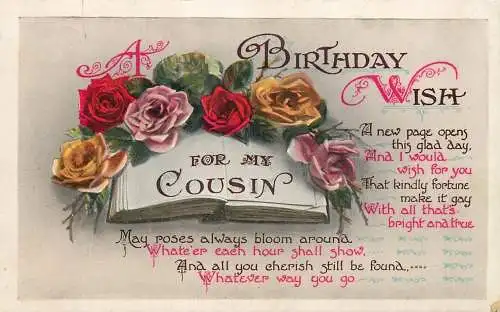 A Birthday Wish
FOR MY
COUSIN
A new page opens
this glad day,
And I would
wish for you
That kindly fortune
make it gay
With all that's
bright and true.
May roses always bloom around.
Whate'er each hour shall show,
And all you cherish still be found,....
Whatever way you go